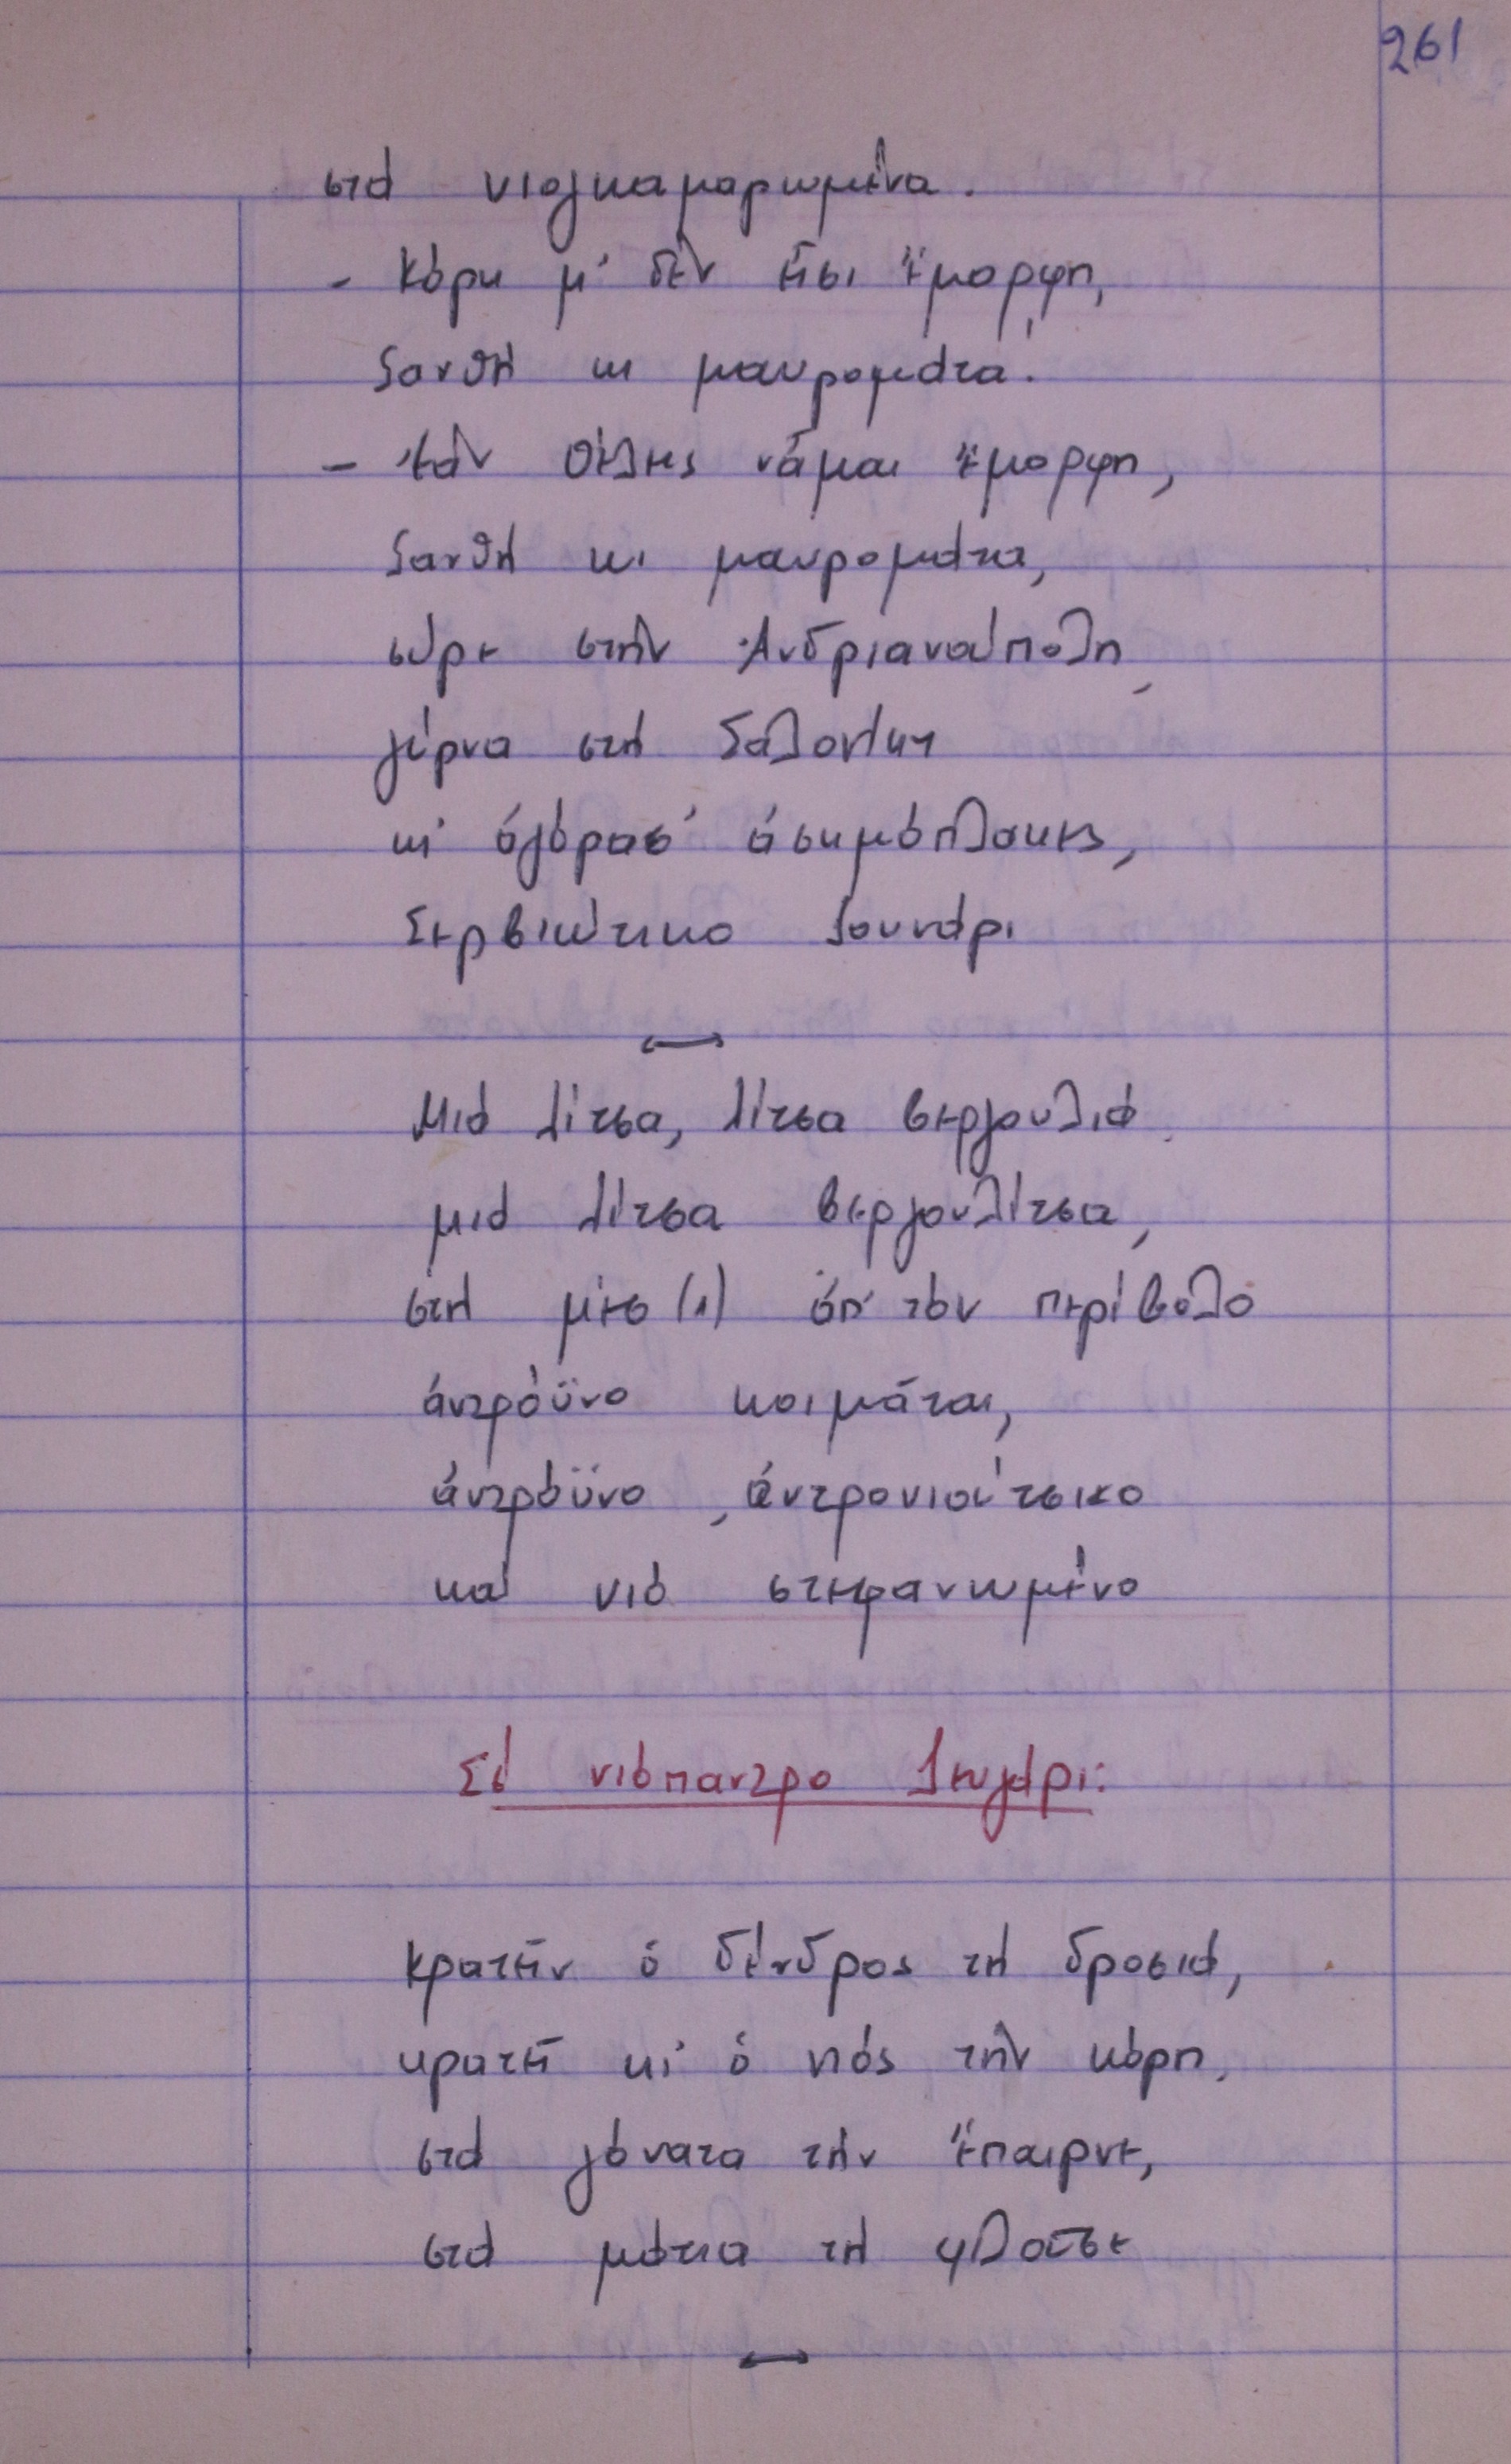 261
στὰ νιογκαμαρωμένα.
- Κόρη μ' δὲν εἶσι ἔμορφη,
ξανθὴ κι μαυρομάτα.
- Ἐὰν θέλεις νἆμαι ἔμορφη,
ξανθὴ κι μαυρομάτα,
σύρε στὴν Ἀνδριανούπολη,
γύρνα στὴ Σαλονίκη
κι ἀγόρασ' ἀσημόπλακες,
Σερβιώτικο ζουνάρι
Μιὰ λίτσα, λίτσα βεργουλιά,
μιὰ λίτσα βεργουλίτσα,
στὴ μέσ (1) ἀπ' τὸν περίβολο
ἀντρόϋνο κοιμᾶται,
ἀντρόϋνο, ἀντρονιούτσικο
καὶ νιὸ στεφανωμένο
Σὲ νιόπαντρο ζευγάρι:
Κρατεῖν ὁ δένδρος τὴ δροσιά,
κρατεῖ κι ὁ νιὸς τὴν κόρη,
στὰ γόνατα τὴν ἔπαιρνε,
στὰ μάτια τὴ φλοῦσε